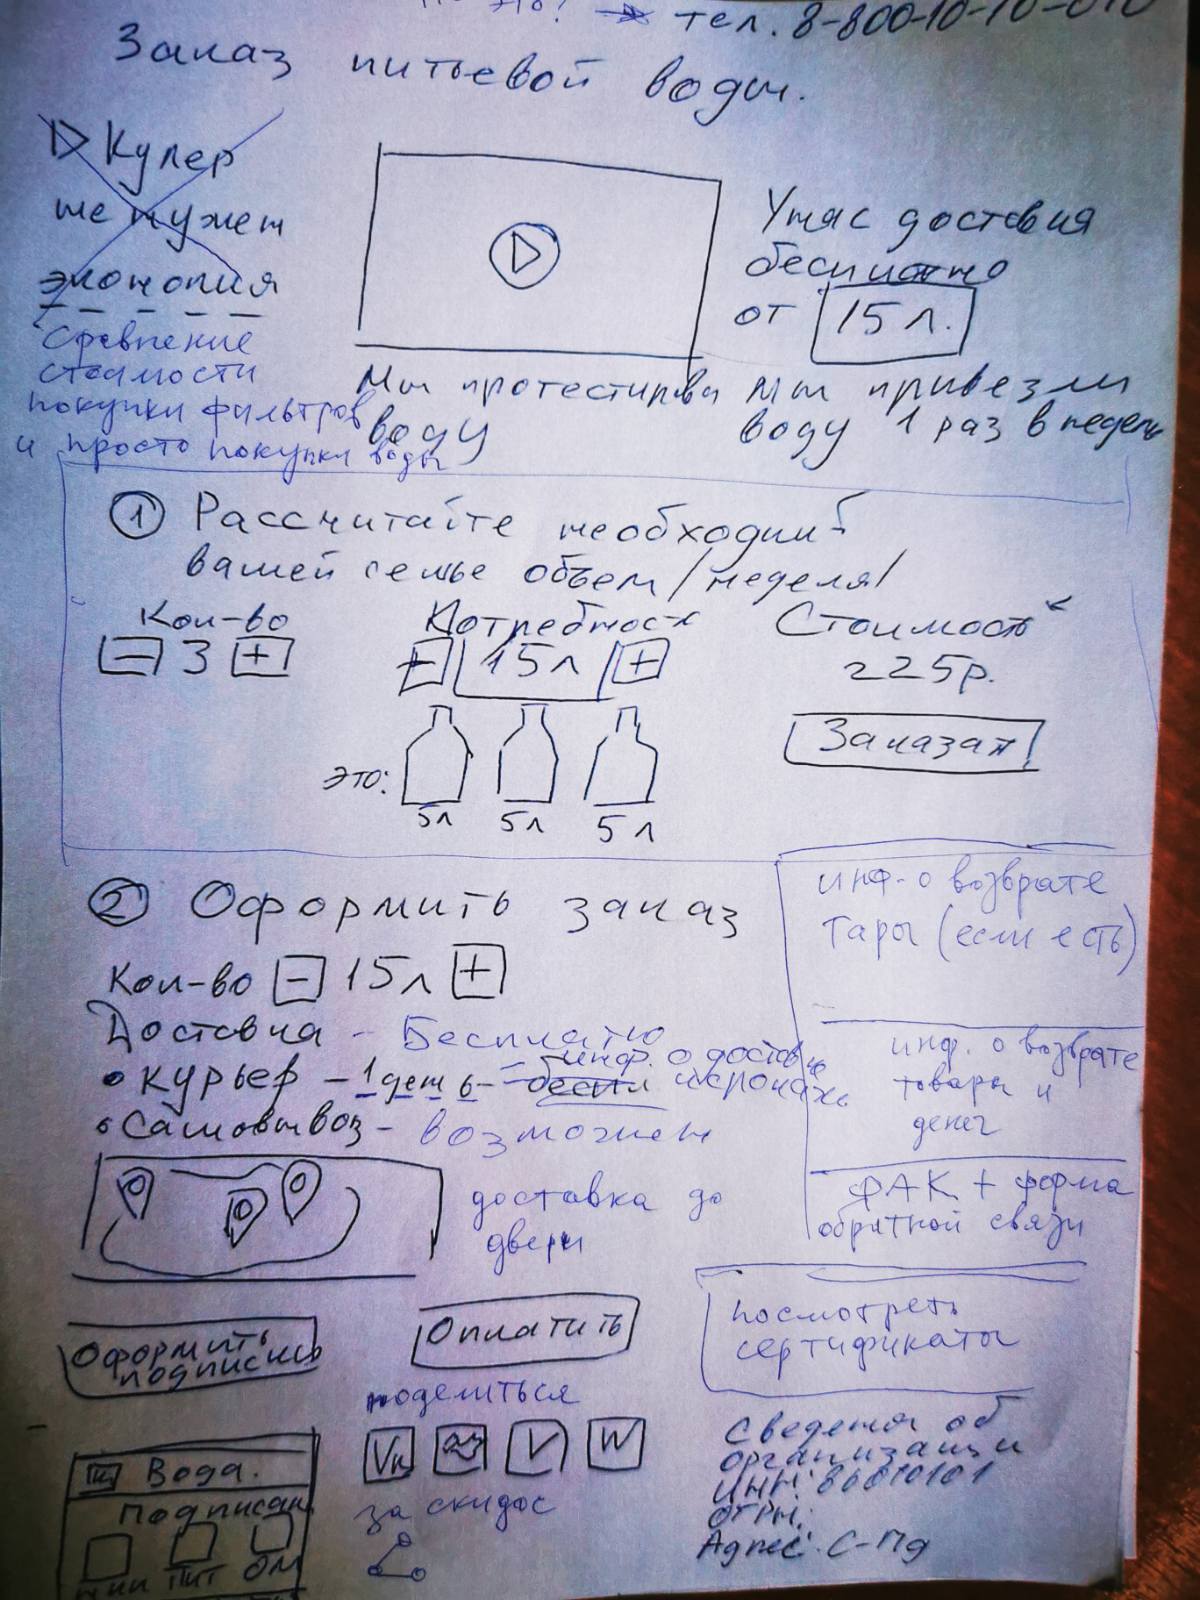 тел. 8-800-10-10-010
Заказ питьевой воды.
Кулер
не нужен
экономия
Сравнение
стоимости
покупки фильтров
и просто покупки воды
Ужас доставка
бесплатно
от 15 л.
Мы протестирова
воду
Мы привезли
воду 1 раз в недель
1 Рассчитайте необходим
вашей семье объем /неделя/
Кол-во
- 3 +
Потребност
- 15 л +
Стоимость
225р.
Заказат
это:
5л 5л 5л
2 Оформить заказ
Кол-во - 15 л +
Доставка - Бесплатно
• курьер - 1 день - инф. о доставке
• Самовывоз - возможен
доставка до
двери
инф. о возврате
тары (если есть)
инф. о возврате
товара и
денег
ФАК + форма
обратной связи
Оформить
подписись
Оплатить
посмотреть
сертификаты
поделиться
Vк V W
за скидос
Сведения об
организации
ИНН: 86010101
ОГРН:
Адрес: С-Пд
Вода.
Подписан